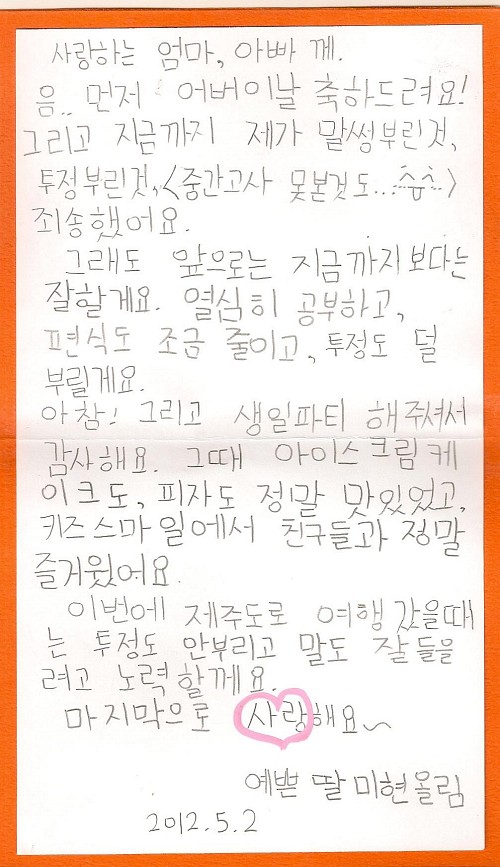 사랑하는 엄마, 아빠 께.
음.. 먼저 어버이날 축하드려요!
그리고 지금까지 제가 말썽부린것,
투정부린것,<중간고사 못본것도...ㅠ>
죄송했어요.
그래도 앞으로는 지금까지보다는
잘할게요. 열심히 공부하고,
편식도 조금 줄이고, 투정도 덜
부릴게요.
아참! 그리고 생일파티 해주셔서
감사해요. 그때 아이스크림케
이크도, 피자도 정말 맛있었고,
키즈스마일에서 친구들과 정말
즐거웠어요.
이번에 제주도로 여행 갔을때
는 투정도 안부리고 말도 잘들을
려고 노력할께요.
마지막으로 사랑해요~
예쁜 딸 미현올림
2012.5.2